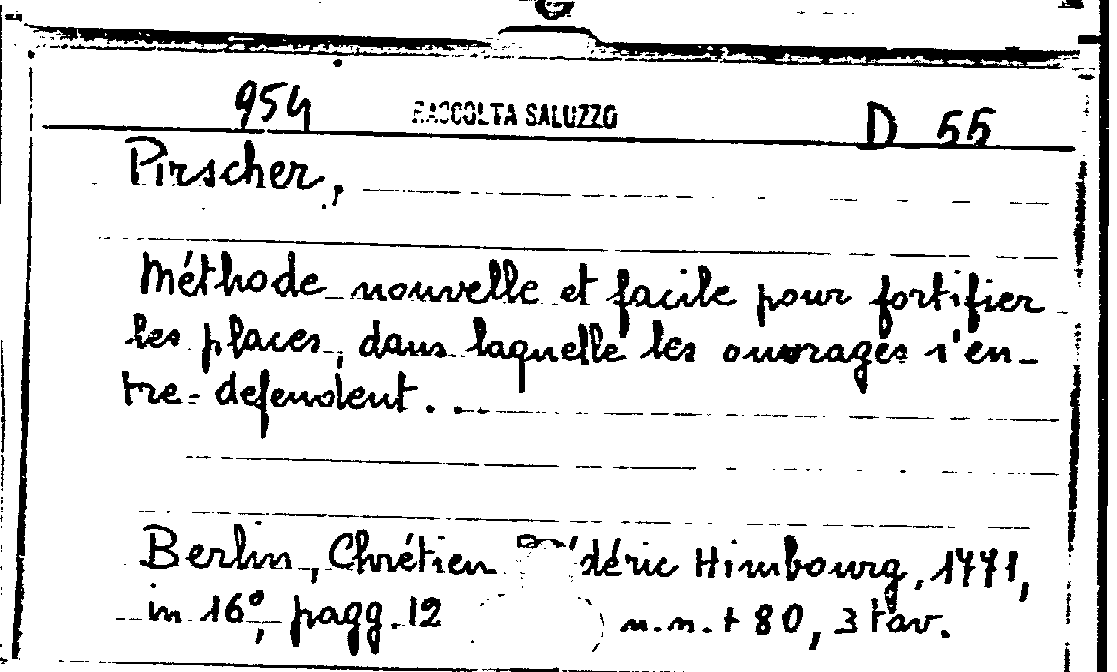 954 RACCOLTA SALUZZO D 55
Pirscher,
Méthode nouvelle et facile pour fortifier
les places, dans laquelle les ouvrages s'en-
tre-defendent...
Berlin, Chrétien déric Himbourg, 1771,
in 16°, pagg. 12 n.n. + 80, 3 tav.